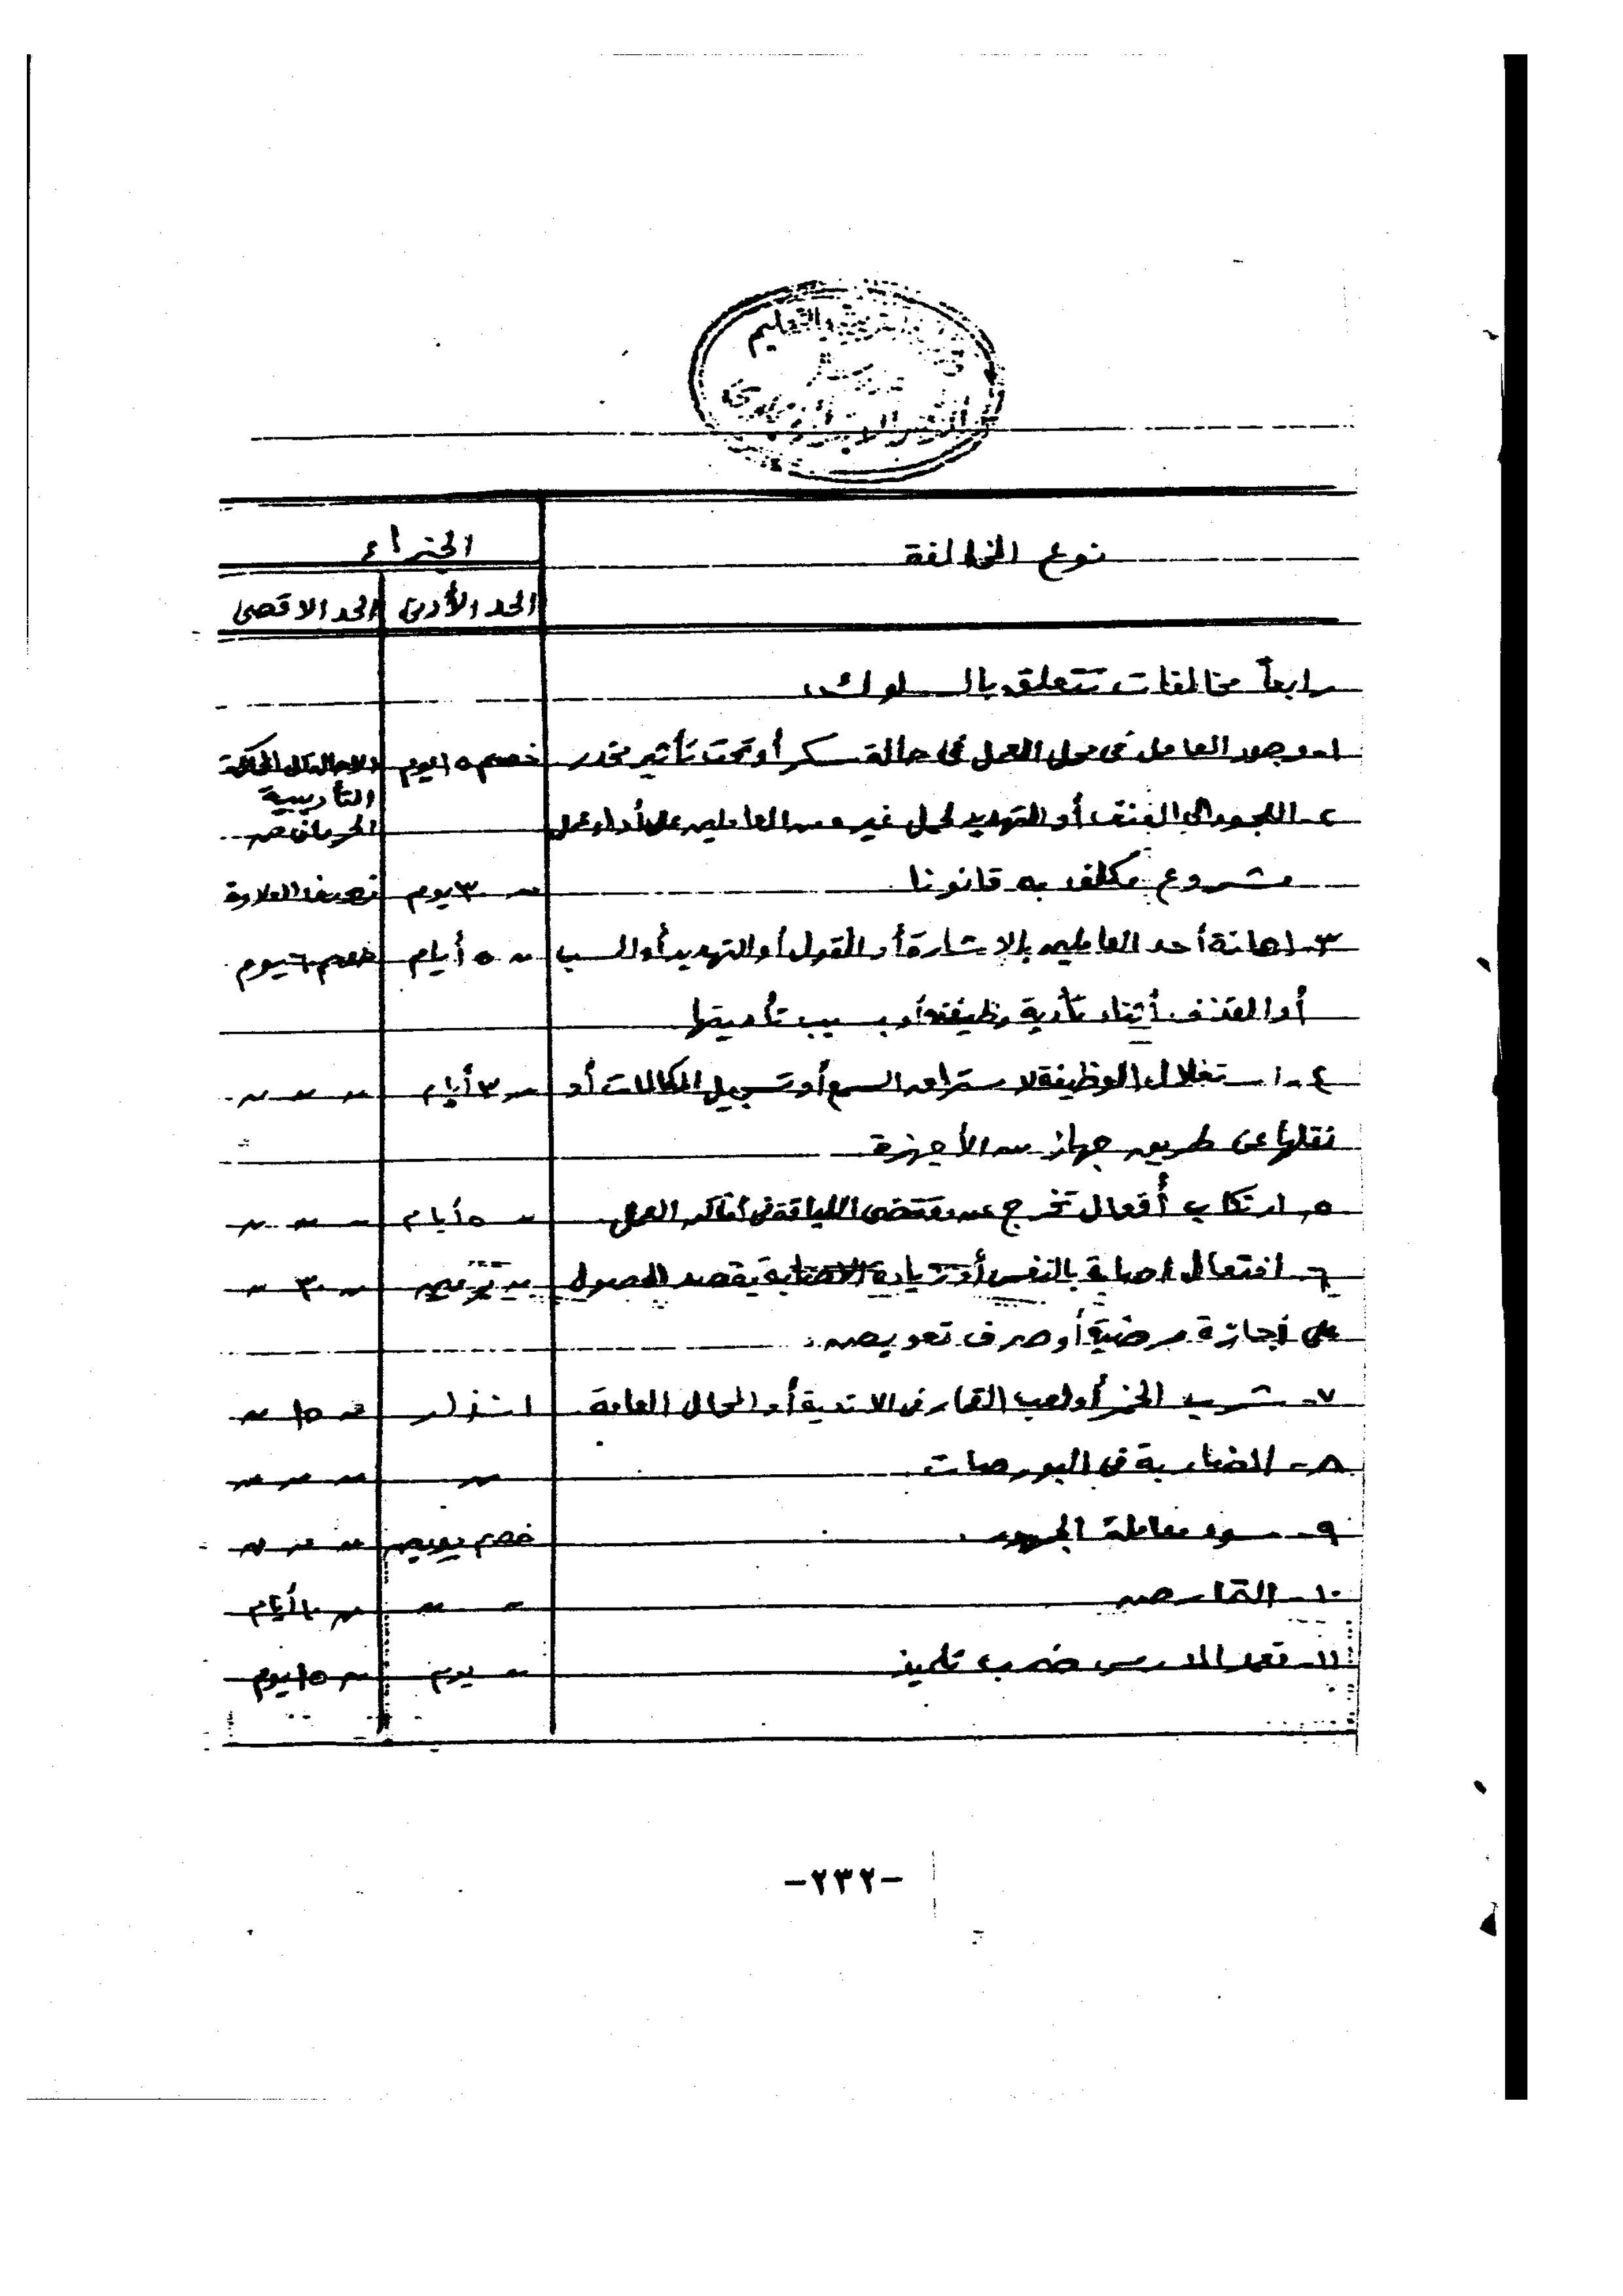 والتعليم
نوع المخالفة
الجزاء
الحد الأدنى
الحد الاقصى
رابعاً مخالفات تتعلق بالسلوك:
١- وجود العامل فى محل العمل فى حالة سكر أو تحت تأثير مخدر
خصم ١٥ يوم
الاحالة الى المحاكمة
التأديبية
٢- اللجوء الى العنف أو التهديد لحمل غيره من العاملين على أداء عمل
الحرمان من
مشروع مكلف به قانونا
〃 ٣٠ يوم
نصف العلاوة
٣- اهانة أحد العاملين بالاشارة أو القول أو التهديد أو السب
〃 ٥ أيام
خصم ٦٠ يوم
أو القذف أثناء تأدية وظيفته أو بسبب تأديتها
٤- استغلال الوظيفة لاستراق السمع أو تسجيل المكالمات أو
〃 ٣ أيام
〃 〃 〃
نقلها عن طريق جهاز من الأجهزة
٥- ارتكاب أفعال تخرج عن مقتضى اللياقة فى أماكن العمل
〃 ٥ أيام
〃 〃 〃
٦- افتعال اصابة بالنفس أو زيادة الاصابة بقصد الحصول
〃 يومين
〃 ٣٠ 〃
على أجازة مرضية أو صرف تعويض.
٧- شرب الخمر أو لعب القمار فى الاندية أو المحال العامة
انذار
〃 ١٥ 〃
٨- المضاربة فى البورصات
〃
〃 〃 〃
٩- سوء معاملة الجمهور.
خصم يومين
〃 〃 〃
١٠- التمارض
〃 〃
〃 ١٠ أيام
١١- تعمد المدرس ضرب تلميذ
〃 يوم
〃 ١٥ يوم
-٢٣٢-